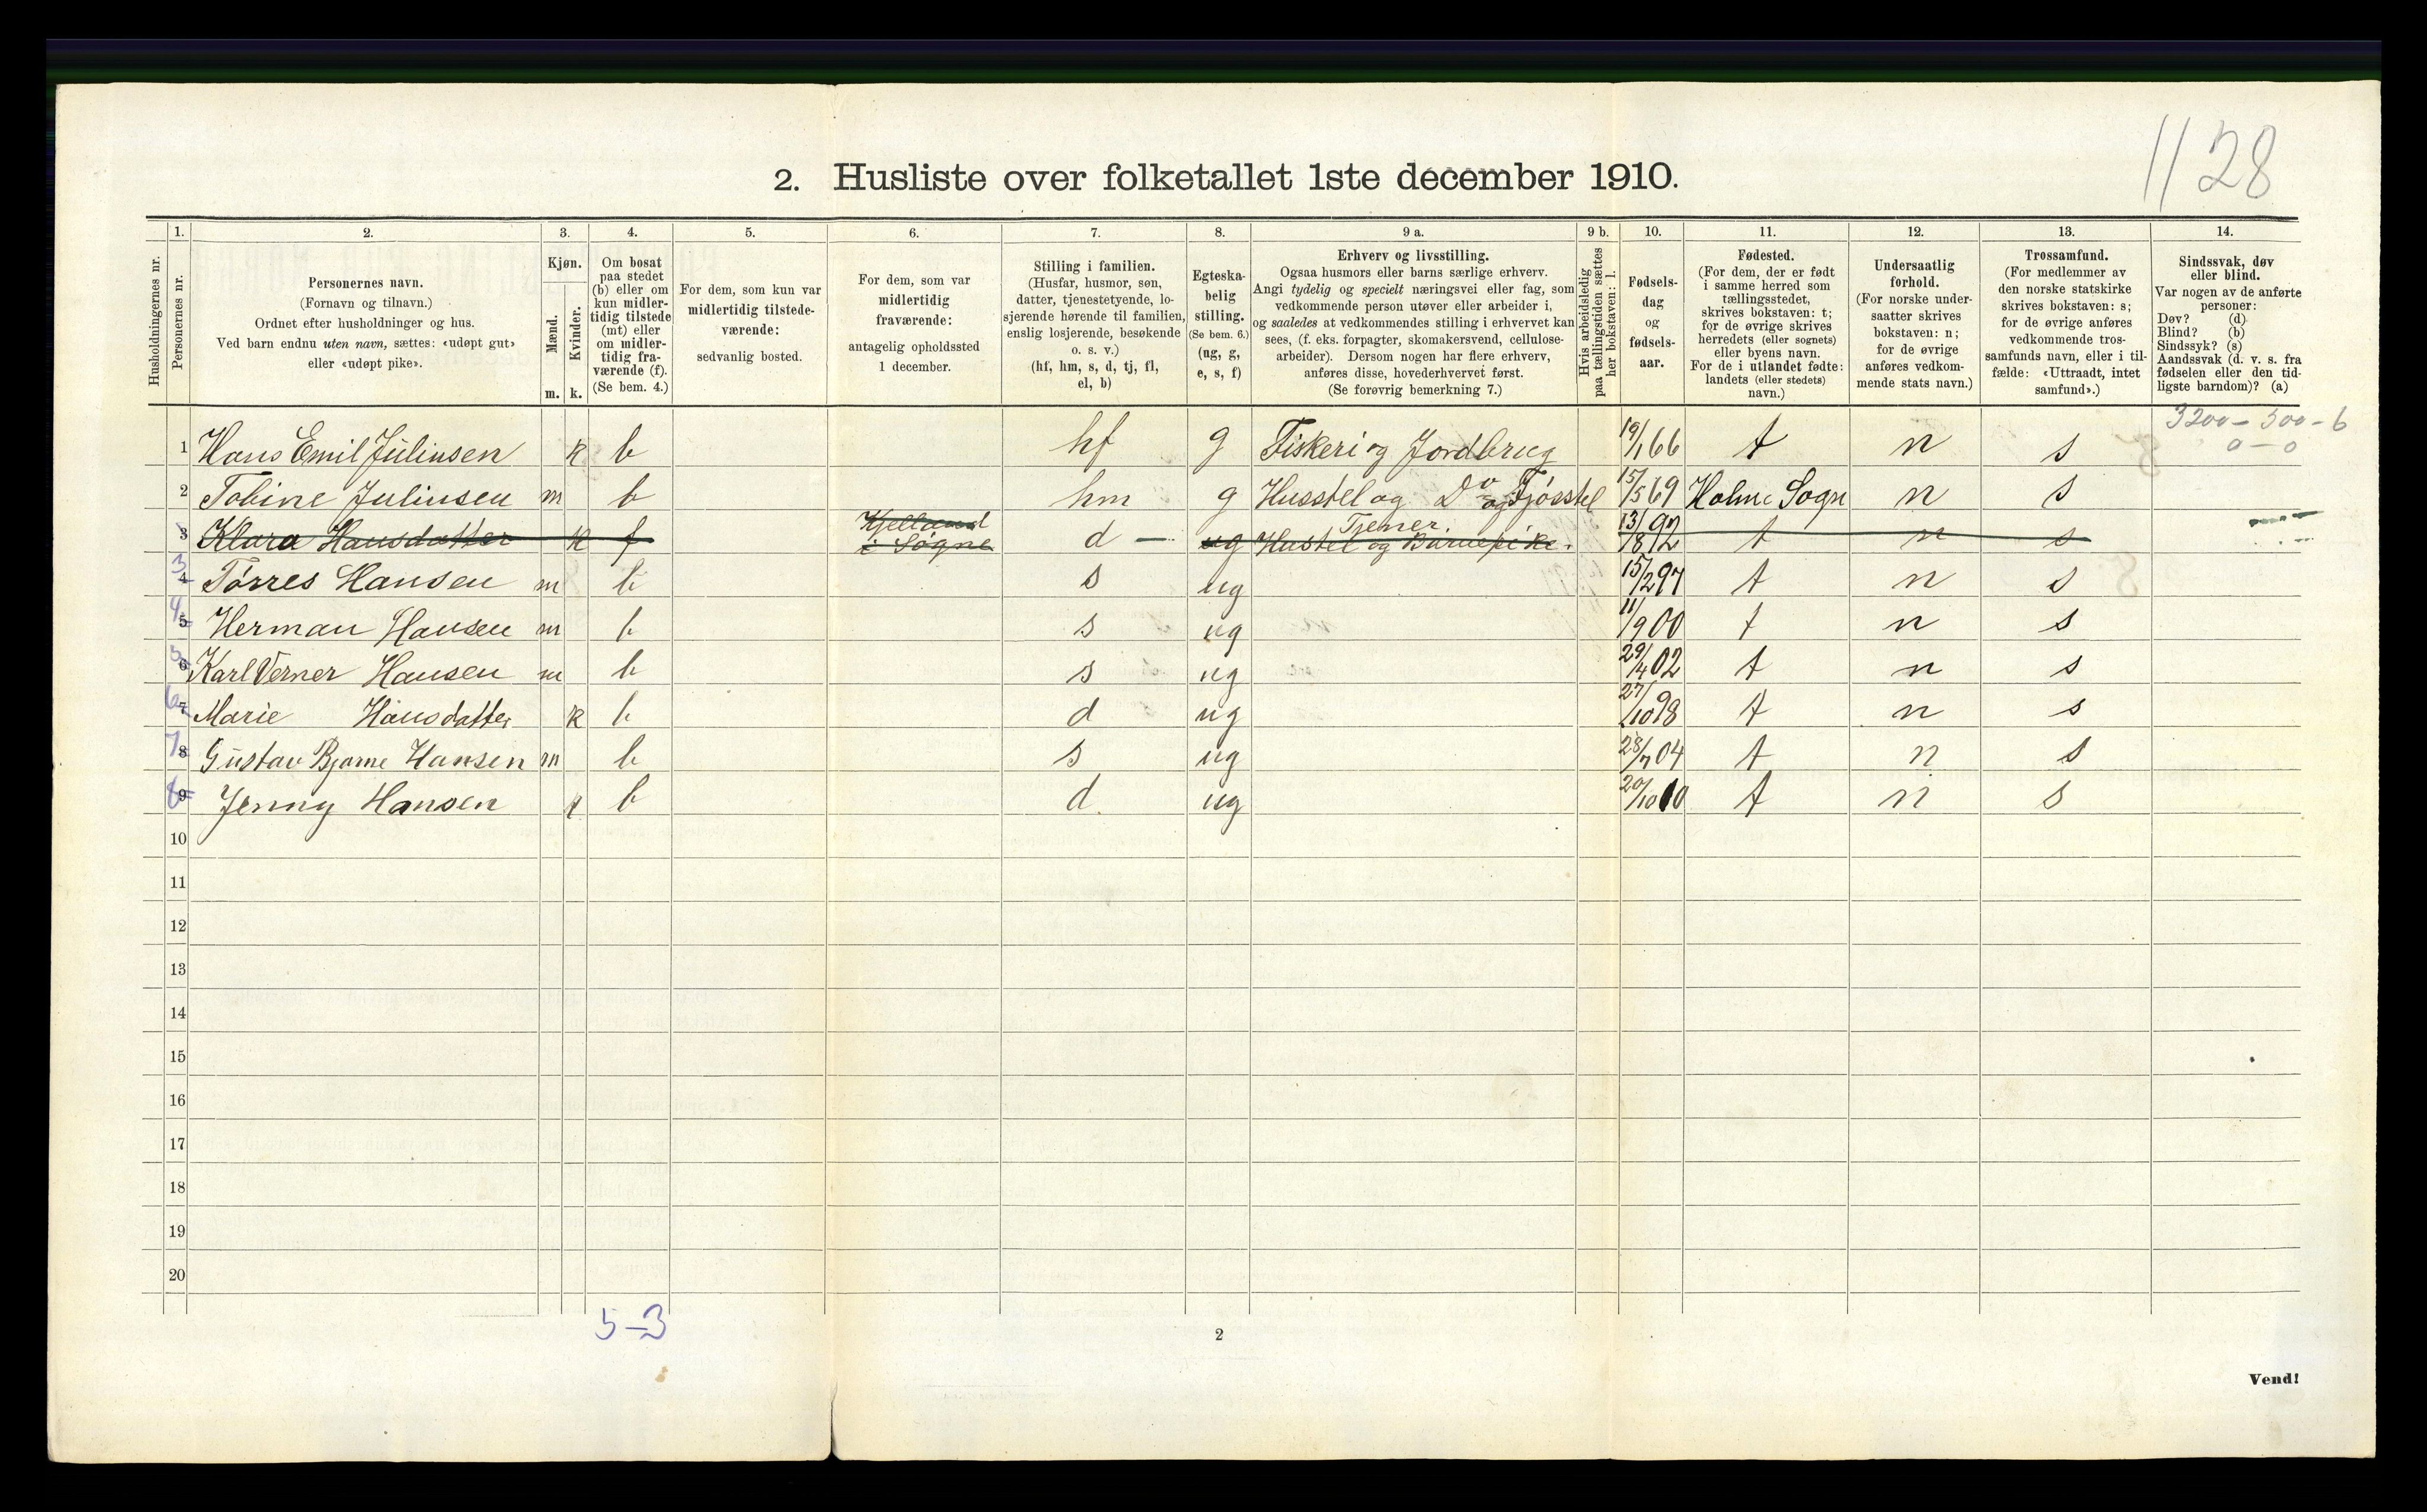 1128
2. Husliste over folketallet 1ste december 1910.
Husholdningernes nr.
1.
Personernes nr.
2.
Personernes navn.
(Fornavn og tilnavn.)
Ordnet efter husholdninger og hus.
Ved barn endnu uten navn, sættes: «udøpt gut»
eller «udøpt pike».
3.
Kjøn.
Mænd.
Kvinder.
m. k.
4.
Om bosat
paa stedet
(b) eller om
kun midler-
tidig tilstede
(mt) eller
om midler-
tidig fra-
værende (f).
(Se bem. 4.)
5.
For dem, som kun var
midlertidig tilstede-
værende:
sedvanlig bosted.
6.
For dem, som var
midlertidig
fraværende:
antagelig opholdssted
1 december.
7.
Stilling i familien.
(Husfar, husmor, søn,
datter, tjenestetyende, lo-
sjerende hørende til familien,
enslig losjerende, besøkende
o. s. v.)
(hf, hm, s, d, tj, fl,
el, b)
8.
Egteska-
belig
stilling.
(Se bem. 6.)
(ug, g,
e, s, f)
9 a.
Erhverv og livsstilling.
Ogsaa husmors eller barns særlige erhverv.
Angi tydelig og specielt næringsvei eller fag, som
vedkommende person utøver eller arbeider i,
og saaledes at vedkommendes stilling i erhvervet kan
sees, (f. eks. forpagter, skomakersvend, cellulose-
arbeider). Dersom nogen har flere erhverv,
anføres disse, hovederhvervet først.
(Se forøvrig bemerkning 7.)
9 b.
Hvis arbeidsledig
paa tællingstiden sættes
her bokstaven: l.
10.
Fødsels-
dag
og
fødsels-
aar.
11.
Fødested.
(For dem, der er født
i samme herred som
tællingsstedet,
skrives bokstaven: t;
for de øvrige skrives
herredets (eller sognets)
eller byens navn.
For de i utlandet fødte:
landets (eller stedets)
navn.)
12.
Undersaatlig
forhold.
(For norske under-
saatter skrives
bokstaven: n;
for de øvrige
anføres vedkom-
mende stats navn.)
13.
Trossamfund.
(For medlemmer av
den norske statskirke
skrives bokstaven: s;
for de øvrige anføres
vedkommende tros-
samfunds navn, eller i til-
fælde: «Uttraadt, intet
samfund».)
14.
Sindssvak, døv
eller blind.
Var nogen av de anførte
personer:
Døv? (d)
Blind? (b)
Sindssyk? (s)
Aandssvak (d. v. s. fra
fødselen eller den tid-
ligste barndom)? (a)
3200 - 300 - 6
0 - 0
1 Hans Emil Juliusen k b hf g Fiskeri og Jordbrug 19/1 66 t n s
2 Tobine Juliusen m b hm g Husstel og Do og Fjøsstel 15/5 69 Holme Sogn n s
3 Klara Hansdatter k f Kjelland i Søgne d - ug Hustel og Barnepike. Tjener. 13/8 92 t n s
3 4 Tørres Hansen m b s ug 15/2 97 t n s
4 5 Herman Hansen m b s ug 11/9 00 t n s
5 6 Karl Verner Hansen m b s ug 29/4 02 t n s
6 7 Marie Hansdatter k b d ug 27/10 98 t n s
7 8 Gustav Bjarne Hansen m b s ug 28/7 04 t n s
8 9 Jenny Hansen k b d. ug 20/10 10 t n s
10
11
12
13
14
15
16
17
18
19
20
5-3
2
Vend!